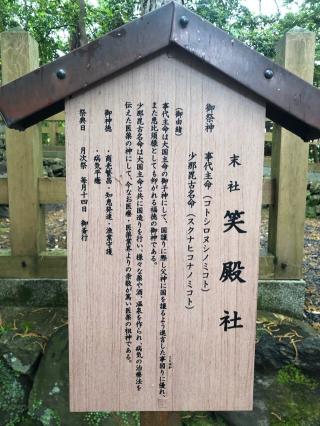 末社 笑殿社
御祭神 事代主命(コトシロヌシノミコト)
少那毘古名命(スクナヒコナノミコト)
(御由緒)
事代主命は大国主命の御子神にして、国譲りに際し父神に国を譲るよう進言した事図りに優れ、
また恵比須様としても仰がれる福徳の御神である。
少那毘古名命は大国主命と共に国造りを行い、様々な薬や酒、温泉を作られ、病気の治療法を
伝えた医薬の神にして、今なお医療・医薬業界よりの崇敬が篤い医薬の祖神である。
御神徳 ・商売繁昌・知恵発達・漁業守護
・病気平癒
祭典日 月次祭 毎月十四日 御斎行